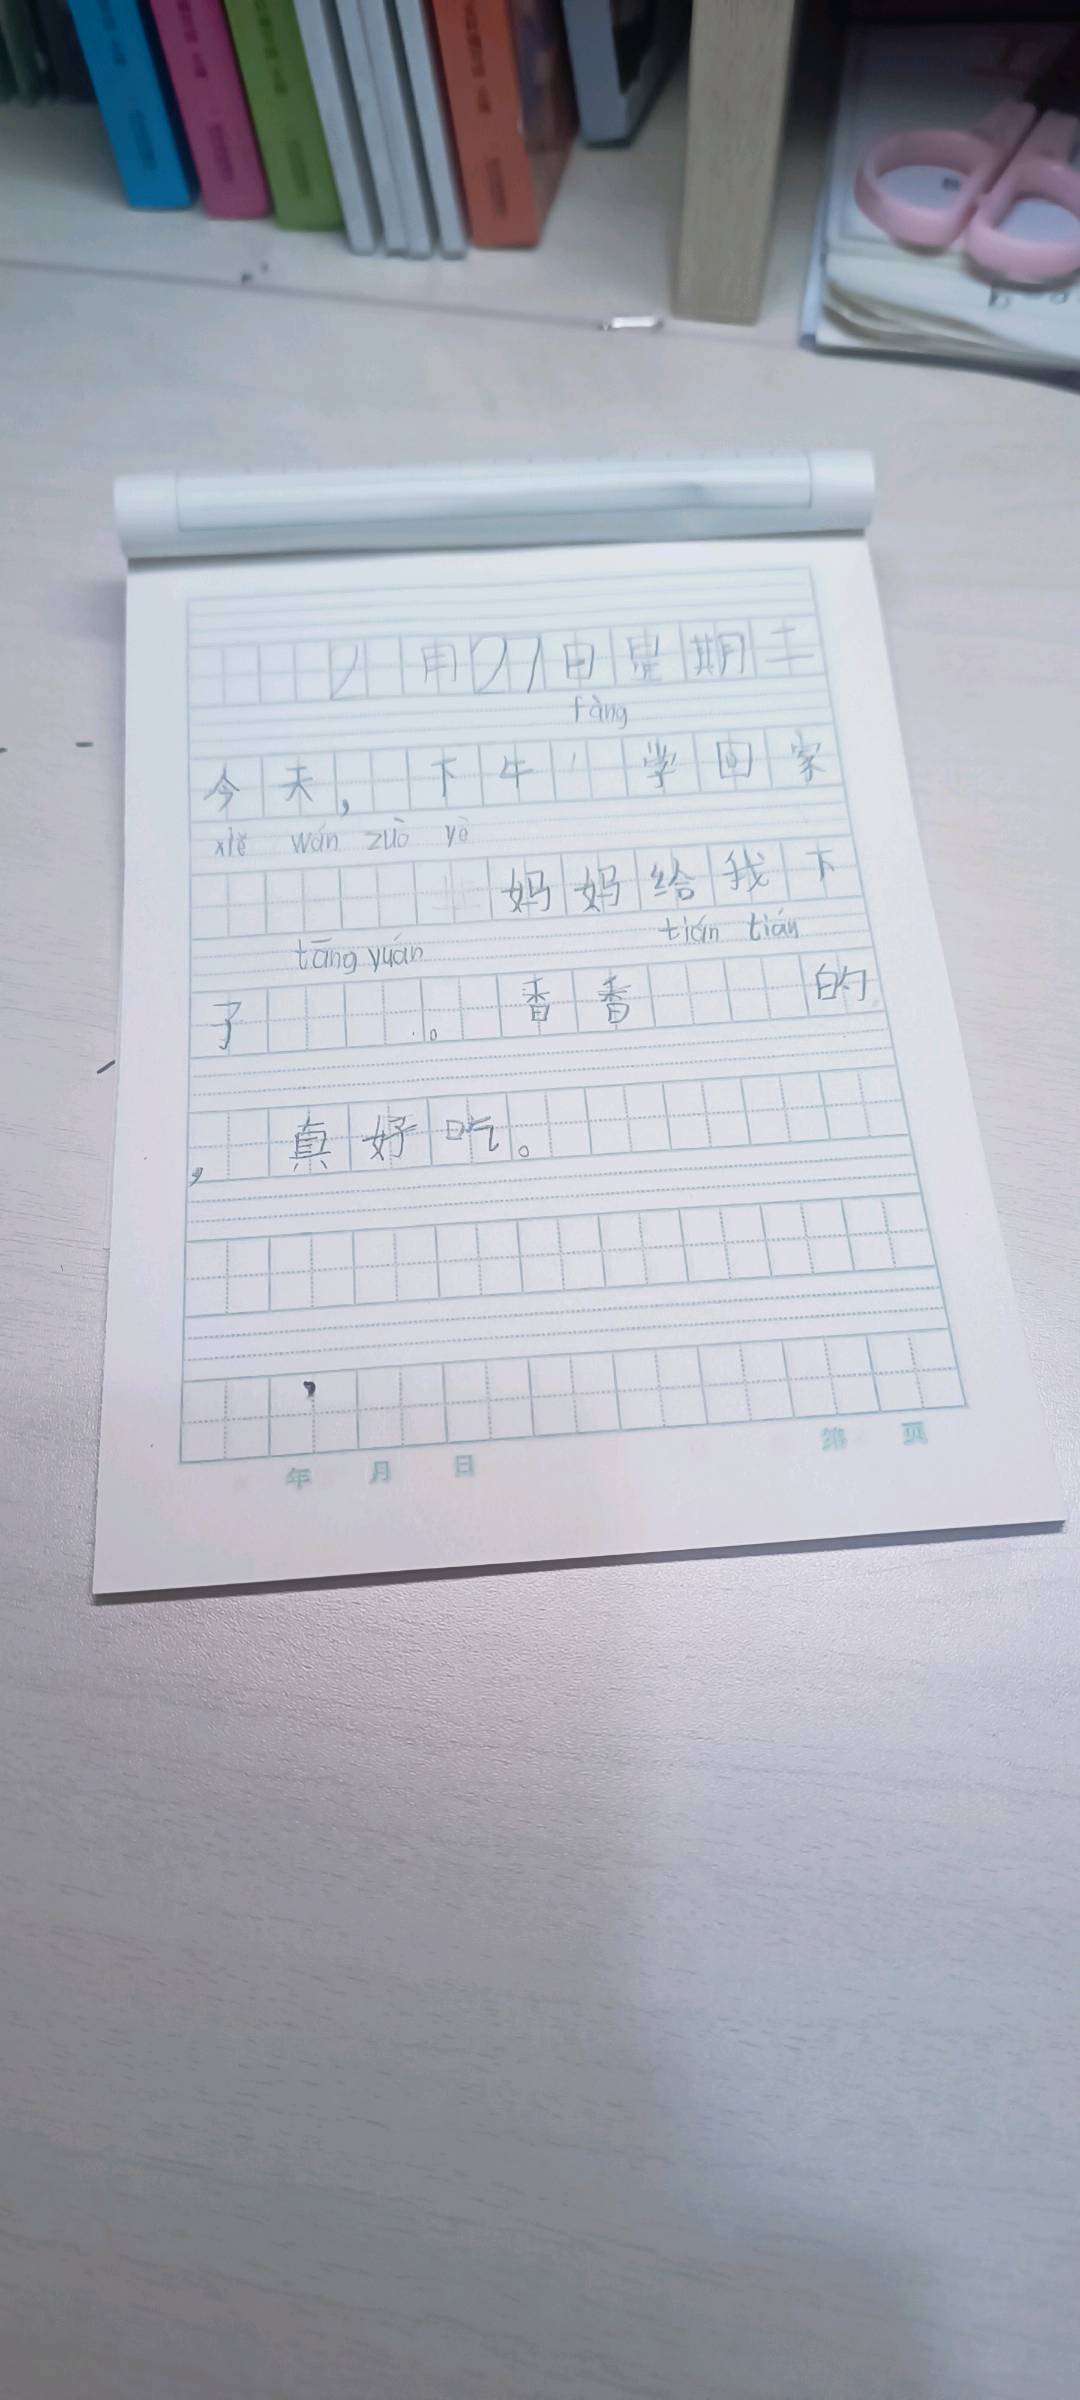 2月27日星期三
fàng
今天,下午 学回家
xiě wán zuò yè
妈妈给我下
tāng yuán tián tián
了 。香香 的
,真好吃。
年 月 日 第 页